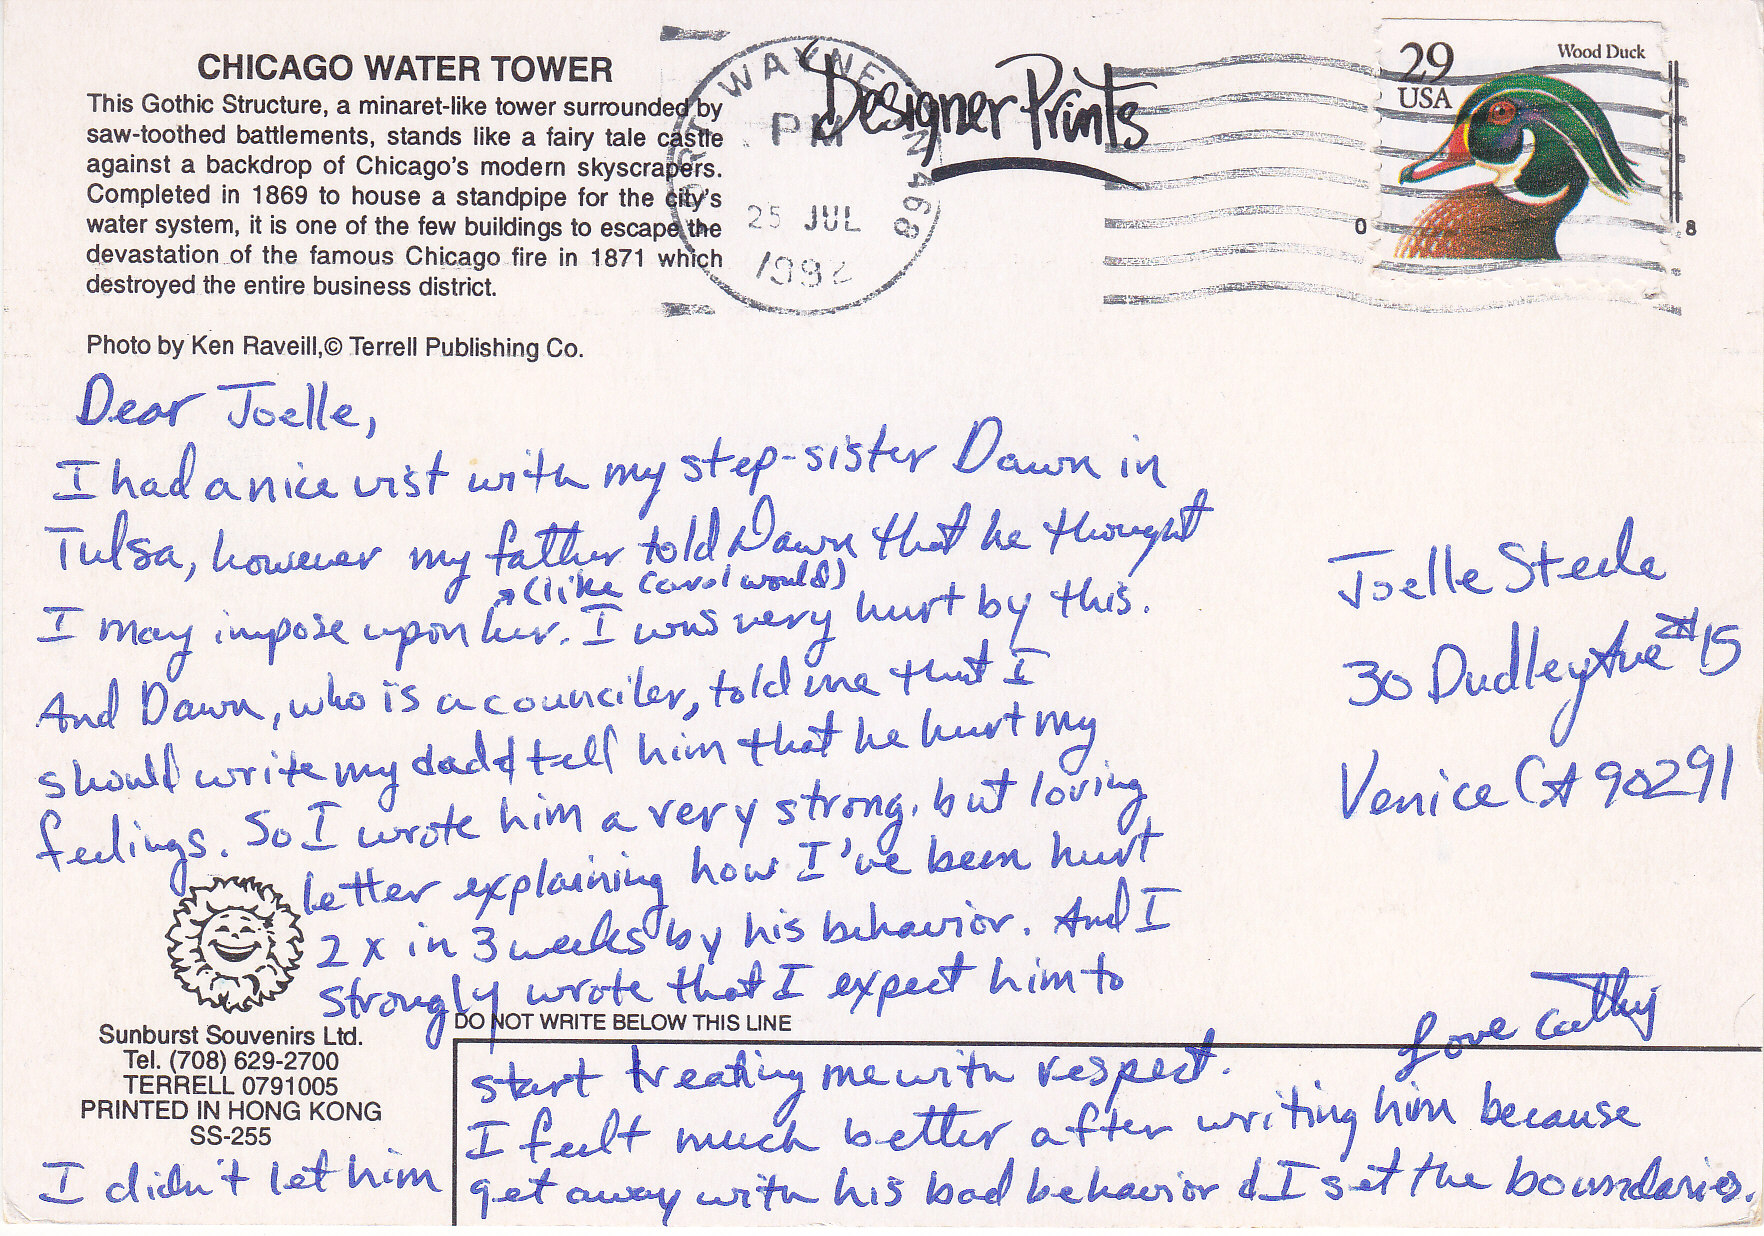 CHICAGO WATER TOWER
This Gothic Structure, a minaret-like tower surrounded by
saw-toothed battlements, stands like a fairy tale castle
against a backdrop of Chicago's modern skyscrapers.
Completed in 1869 to house a standpipe for the city's
water system, it is one of the few buildings to escape the
devastation of the famous Chicago fire in 1871 which
destroyed the entire business district.
Photo by Ken Raveill,© Terrell Publishing Co.
WAYNE IN 468
PM
25 JUL
1992
Designer Prints
29
USA
Wood Duck
0
8
Dear Joelle,
I had a nice vist with my step-sister Dawn in
Tulsa, however my father told Dawn that he thought
(like Carol would)
I may impose upon her. I was very hurt by this.
And Dawn, who is a counciler, told me that I
should write my dad & tell him that he hurt my
feelings. So I wrote him a very strong, but loving
letter explaining how I've been hurt
2 x in 3 weeks by his behavior. And I
strongly wrote that I expect him to
DO NOT WRITE BELOW THIS LINE
start treating me with respect.
I felt much better after writing him because
I didn't let him get away with his bad behavior & I set the boundaries.
Love Cathy
Joelle Steele
30 Dudley Ave #15
Venice CA 90291
Sunburst Souvenirs Ltd.
Tel. (708) 629-2700
TERRELL 0791005
PRINTED IN HONG KONG
SS-255